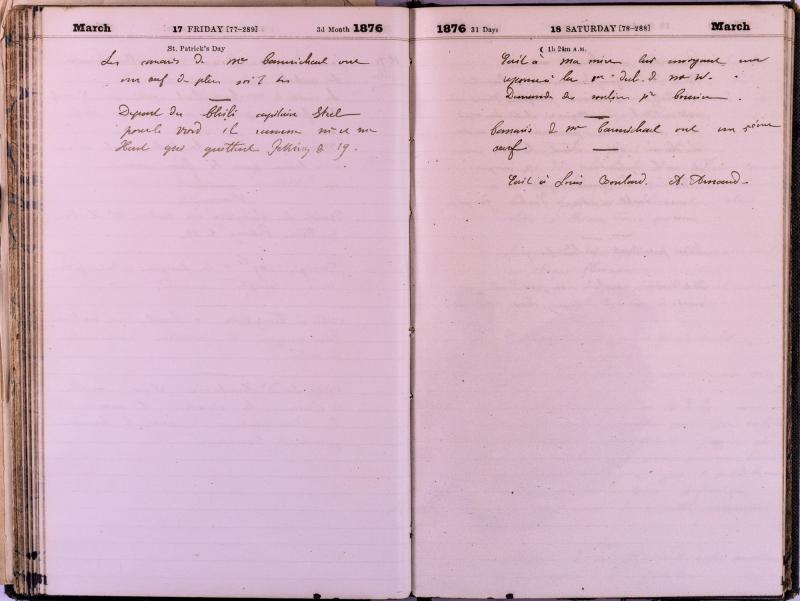 March 17 FRIDAY [77-289] 3d Month 1876
St. Patrick's Day
Les canaris de Mme Carmichael ont
un œuf de plus soit
Depart du Chihli capitaine
pour le nord il emmène mr et me
Hart qui quittent Peking le 19.
1876 31 Days 18 SATURDAY [78-288] March
☾ 1h 24m A.M.
Ecrit à ma mère lui envoyant ma
reponse à la de
Demande de pr
Canaris de Mme Carmichael ont un 5ème
œuf
Ecrit à Louis A. Arnaud.